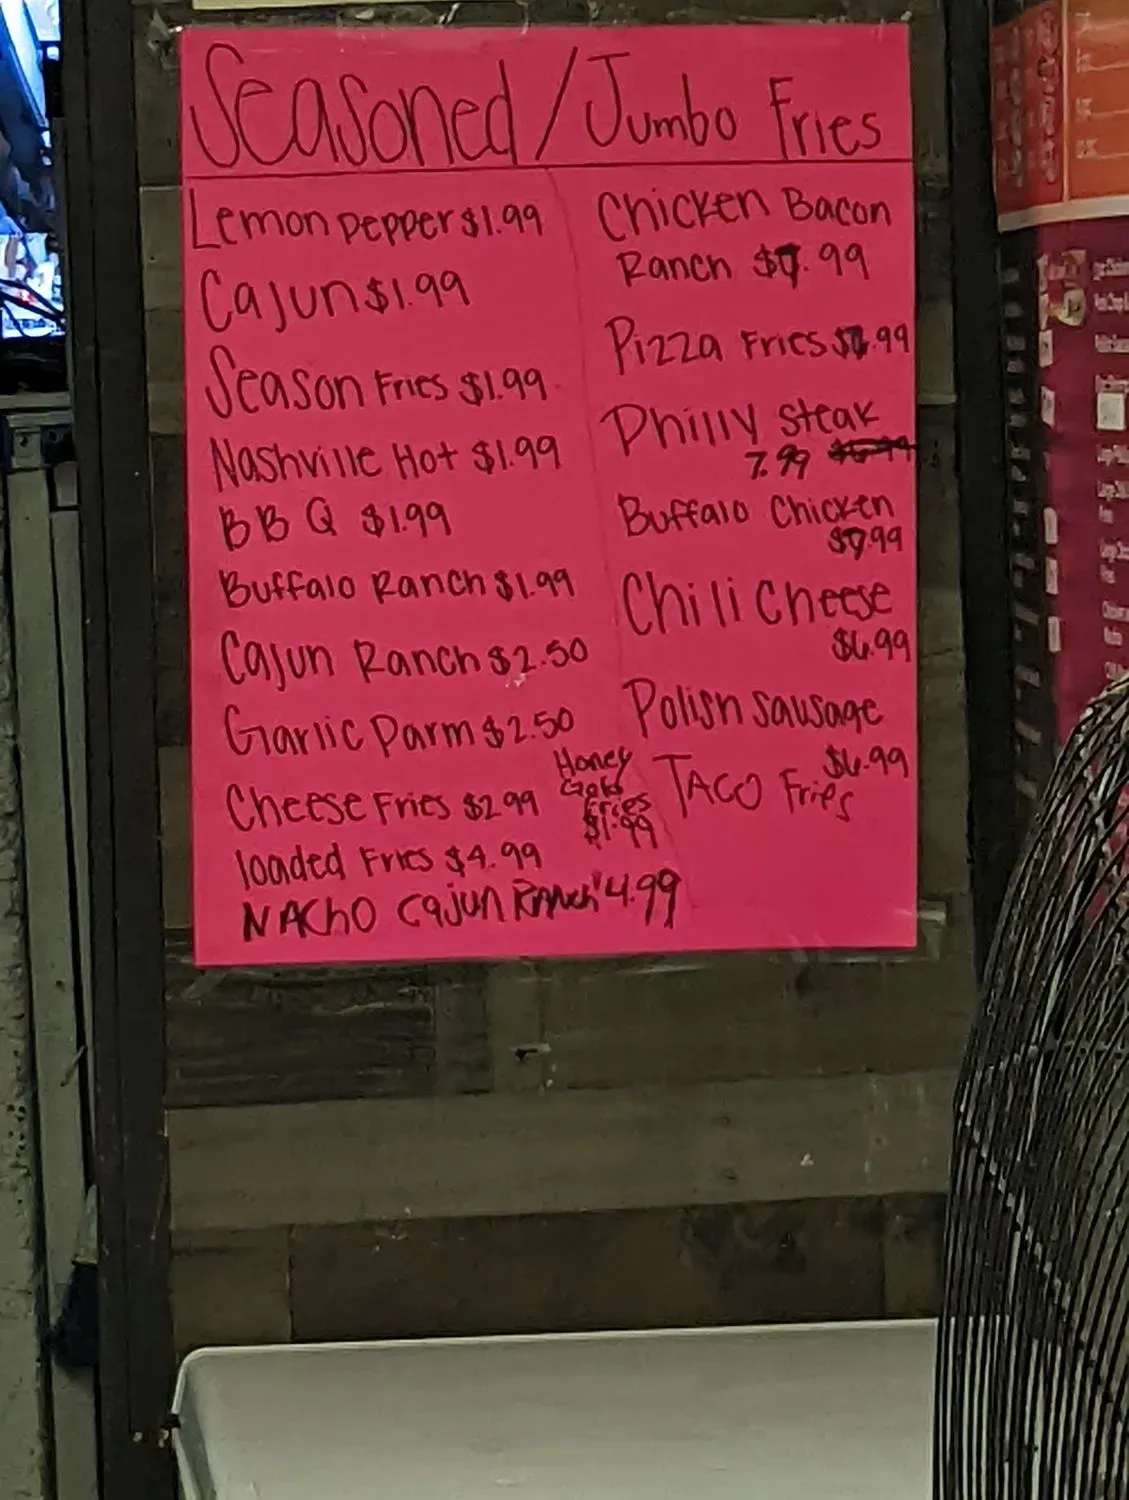 Seasoned / Jumbo Fries
Lemon pepper $1.99
Cajun $1.99
Season Fries $1.99
Nashville Hot $1.99
BBQ $1.99
Buffalo Ranch $1.99
Cajun Ranch $2.50
Garlic Parm $2.50
Cheese Fries $2.99
Honey
Gold
Fries
$1.99
loaded Fries $4.99
NACHO Cajun Ranch 4.99
Chicken Bacon
Ranch $7.99
Pizza Fries $7.99
Philly steak
7.99
Buffalo Chicken
$7.99
Chili Cheese
$6.99
Polish sausage
$6.99
TACO Fries